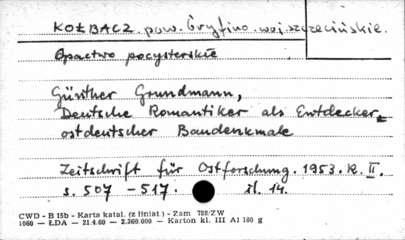 KOŁBACZ. pow. Gryfino. woj. szczecińskie.
Opactwo pocysterskie
Günther Grundmann,
Deutsche Romantiker als Entdecker
ostdeutscher Baudenkmale
Zeitschrift für Ostforschung. 1953. R. II.
s. 507 - 517. il. 14.
CWD - B 15b - Karta katal. (z liniat.) - Zam 788/ZW
1060 — ŁDA — 21.4.60 - 2.360.000 — Karton kl. III A1 160 g